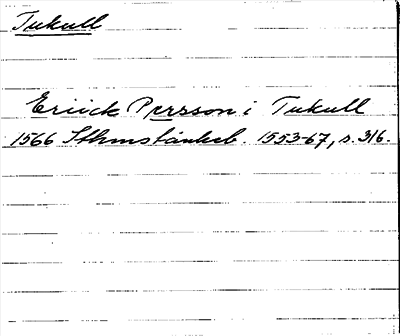 Tukull
Eriick Persson i Tukull
1566 Sthmstänkeb. 1553-67, s. 316.